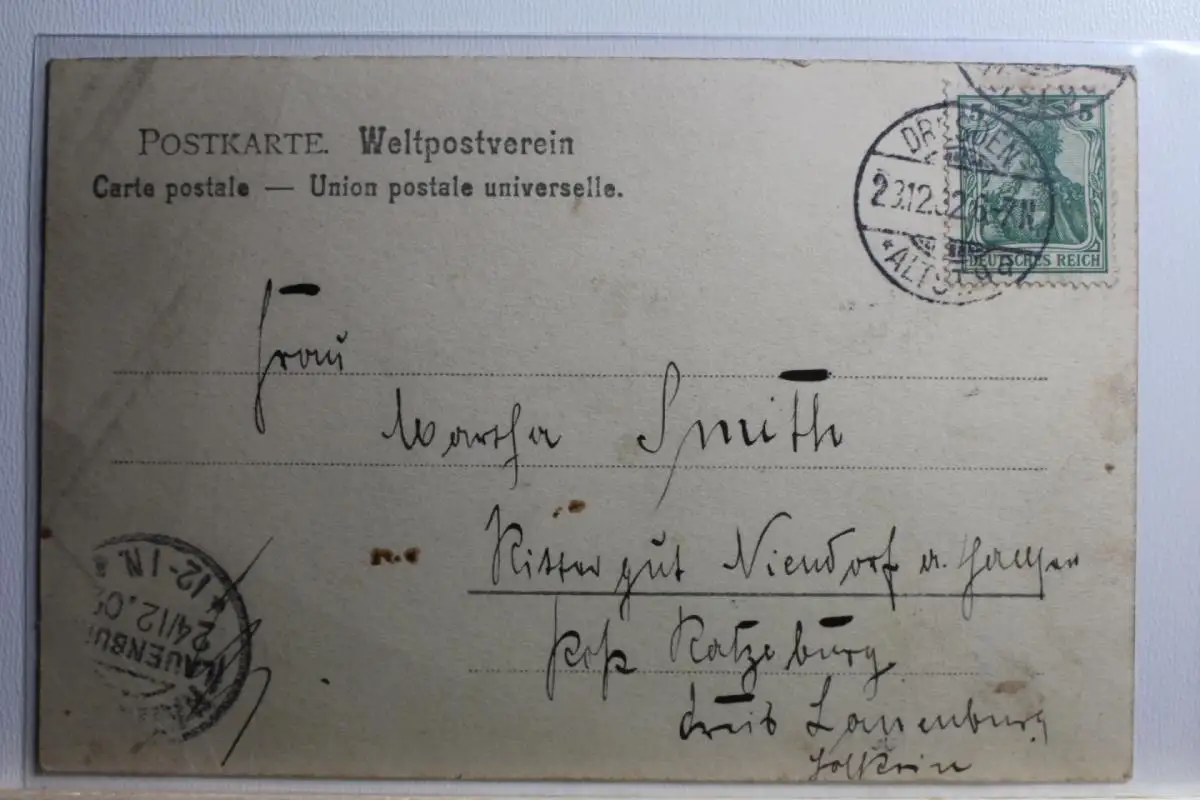 POSTKARTE. Weltpostverein
Carte postale — Union postale universelle.
5 5
DEUTSCHES REICH
DRESDEN
23.12.02.6-7N.
*ALTST.
Frau
Martha Smith
Rittergut Niendorf a.
Post Ratzeburg
Kreis Lauenburg
Holstein
LAUENBU
24/12.0
*12-1N.